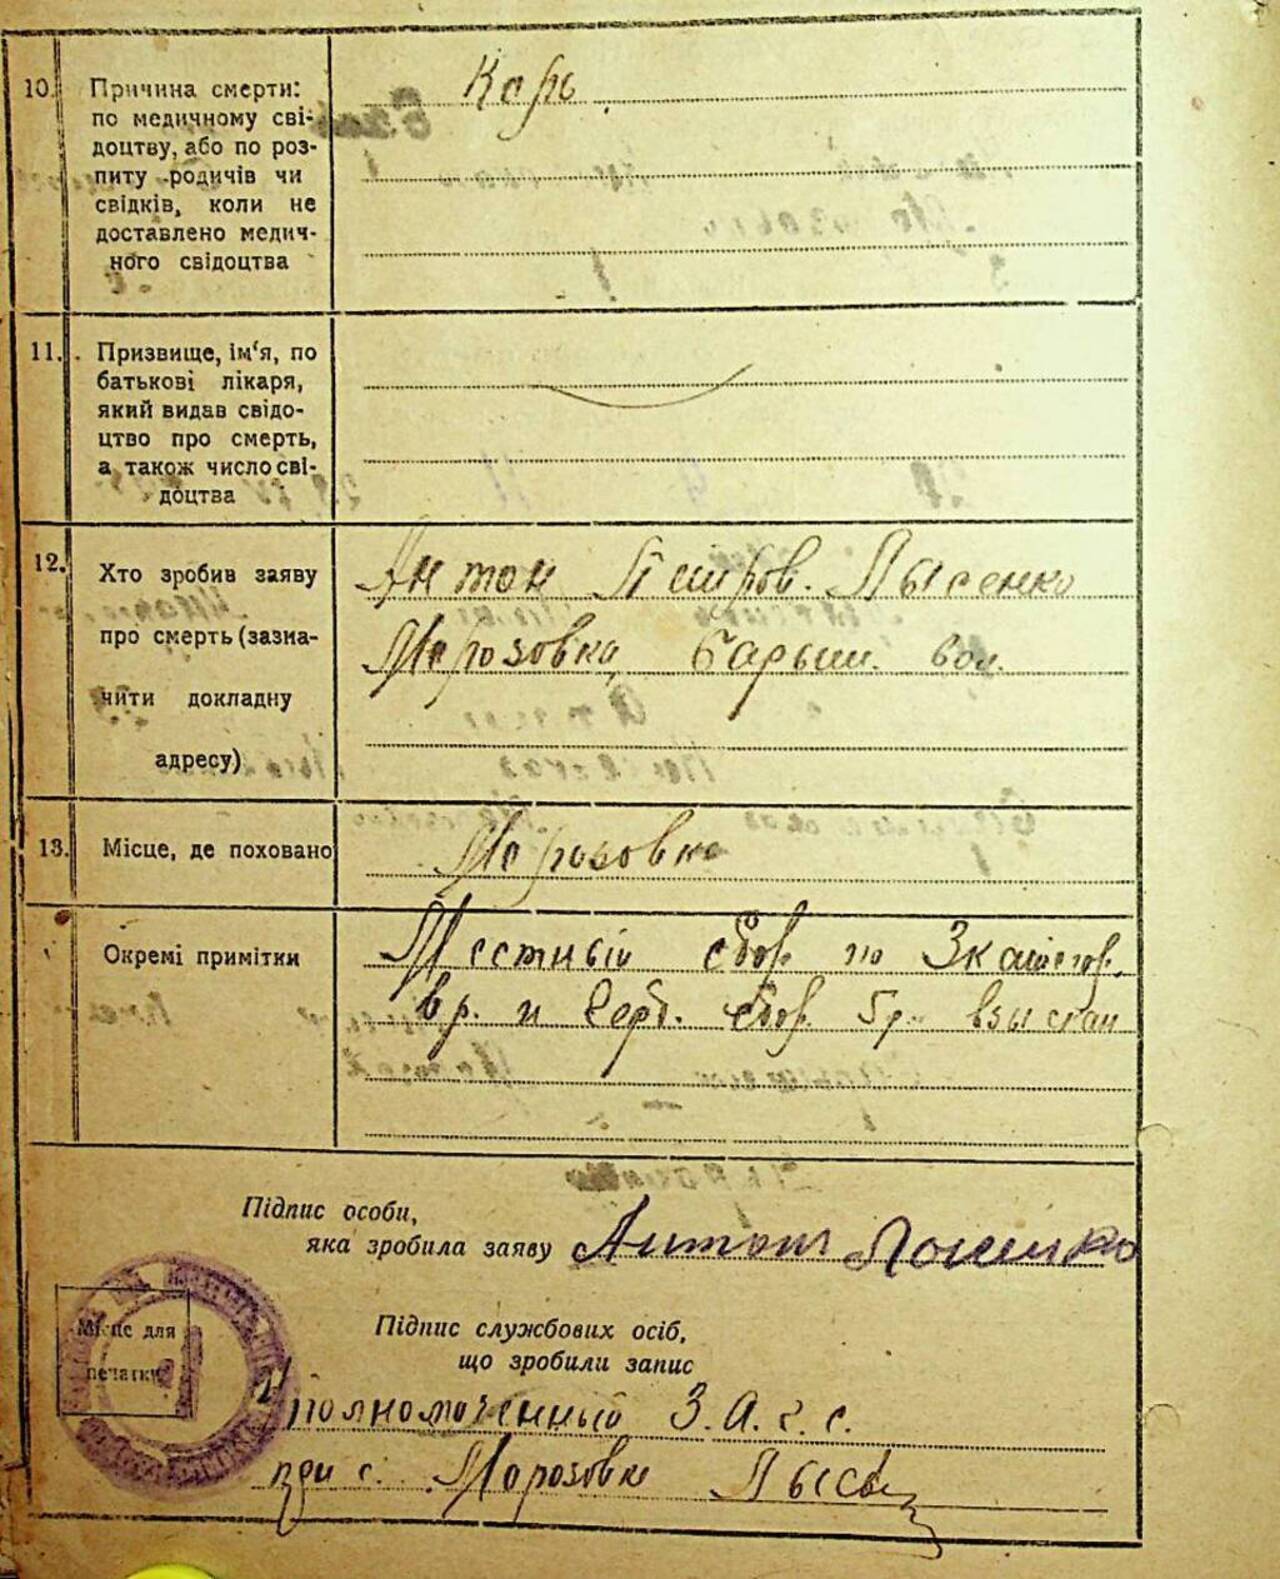 10. Причина смерти:
по медичному сві-
доцтву, або по роз-
питу родичів чи
свідків, коли не
доставлено медич-
ного свідоцтва
Корь
11. Призвище, ім‘я, по
батькові лікаря,
який видав свідо-
цтво про смерть,
а також число сві-
доцтва
12. Хто зробив заяву
про смерть (зазна-
чити докладну
адресу)
Антон Петров. Лысенко
Морозовка Барыш. вол.
13. Місце, де поховано
Морозовка
Окремі примітки
Местный сбор по 3 категор.
вр. и Герб. сбор. 5 р. взыскан
Підпис особи,
яка зробила заяву Антон
Місце для
печатки
Підпис службових осіб,
що зробили запис
Уполномоченный З.А.Г.С.
при с. Морозовке